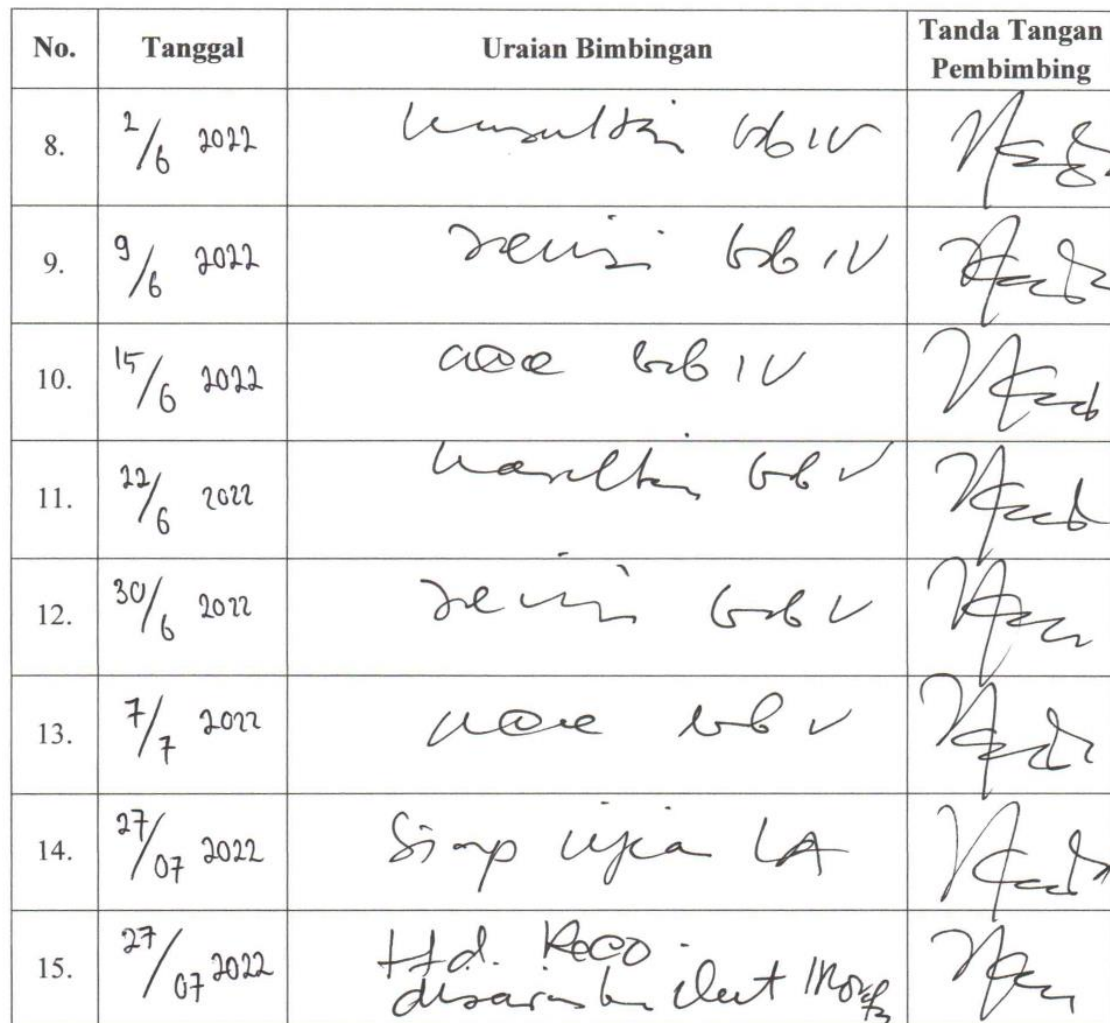 No. Tanggal Uraian Bimbingan Tanda Tangan Pembimbing
8. 2/6 2022 konsultasi bab IV
9. 9/6 2022 revisi bab IV
10. 15/6 2022 acc bab IV
11. 22/6 2022 konsultasi bab V
12. 30/6 2022 revisi bab V
13. 7/7 2022 acc bab V
14. 27/07 2022 Siap ujian LA
15. 27/07 2022 Ttd. Reco